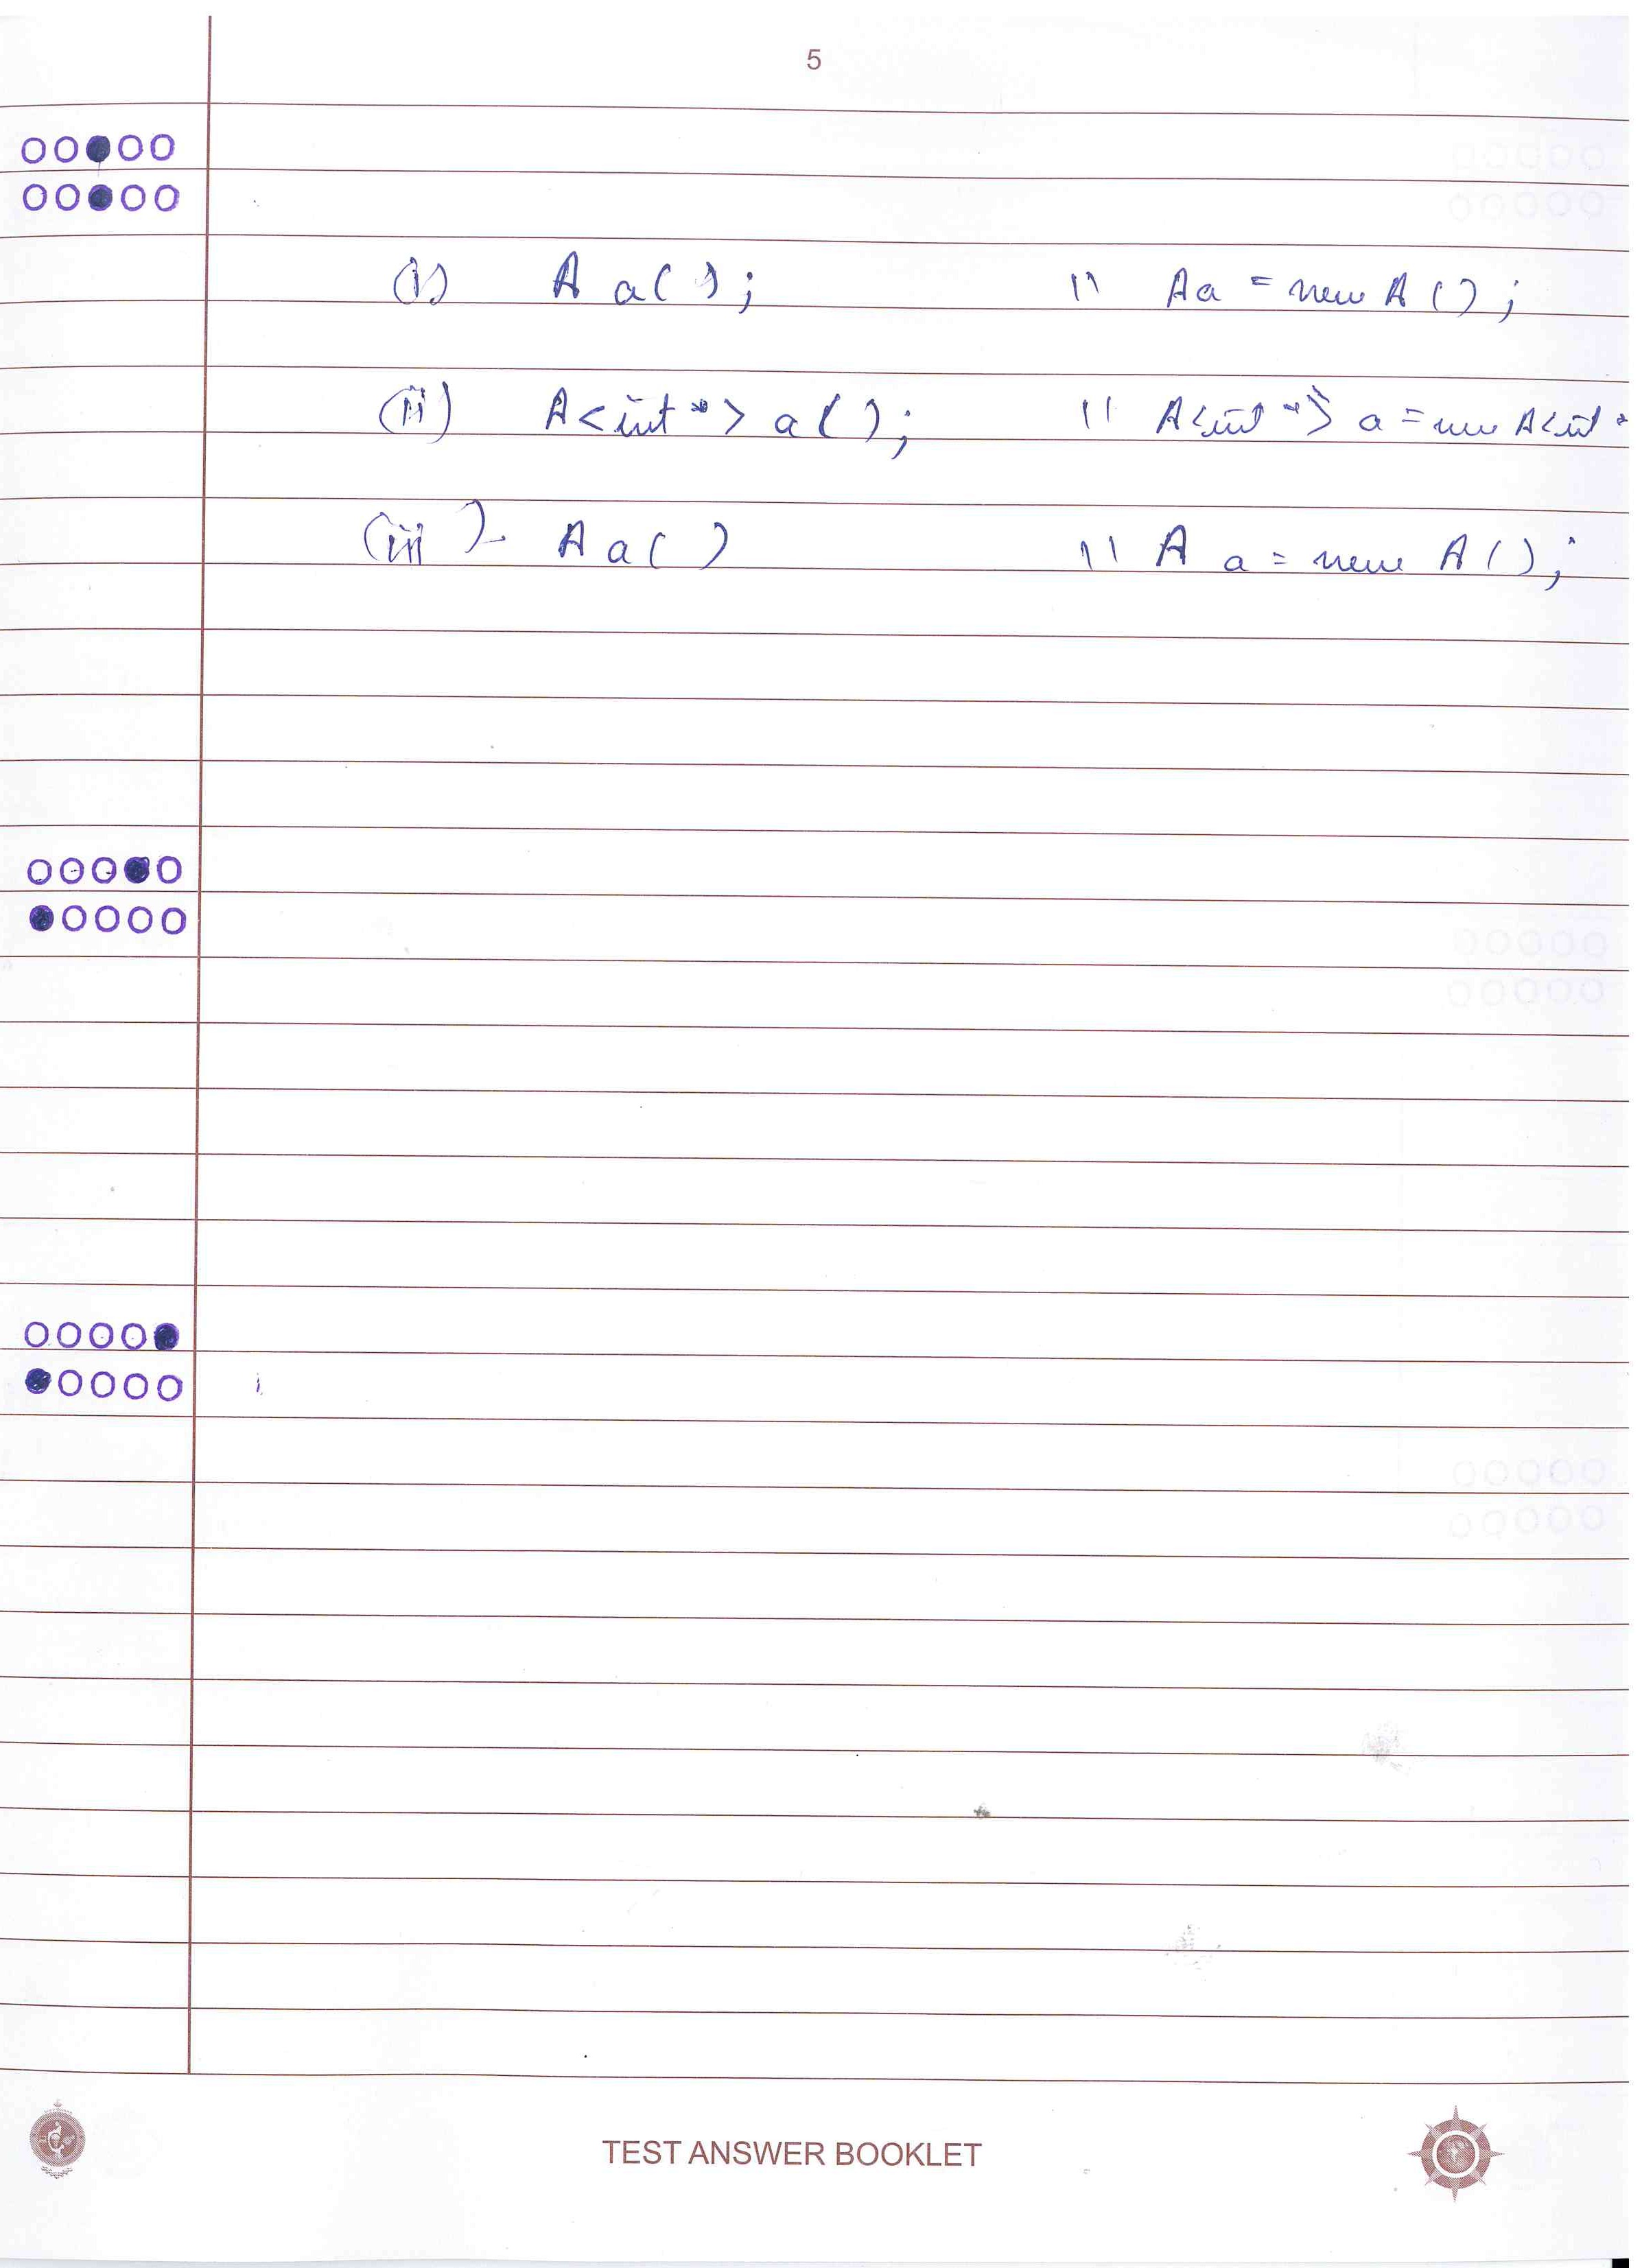 5
(i) A a(); // A a = new A();
(ii) A<int *> a(); // A<int *> a = new A<int *
(iii) A a() // A a = new A();
TEST ANSWER BOOKLET